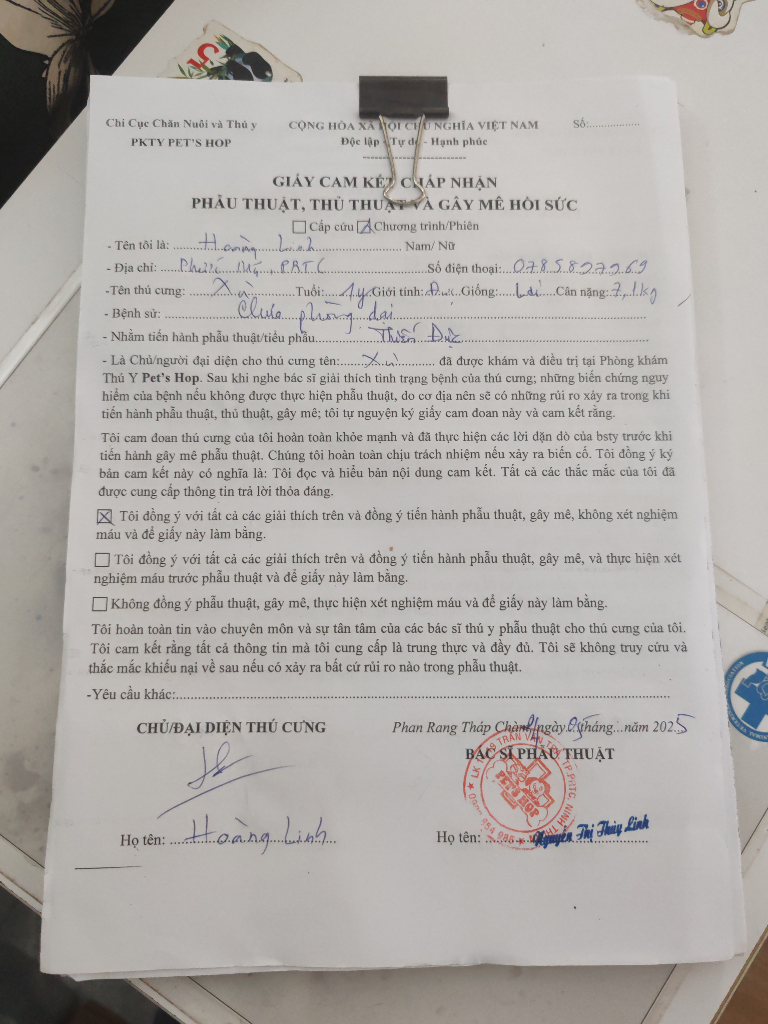 Chi Cục Chăn Nuôi và Thú y
PKTY PET'S HOP
CỘNG HÒA XÃ HỘI CHỦ NGHĨA VIỆT NAM
Độc lập - Tự do - Hạnh phúc
Số:................
GIẤY CAM KẾT CHẤP NHẬN
PHẪU THUẬT, THỦ THUẬT VÀ GÂY MÊ HỒI SỨC
Cấp cứu Chương trình/Phiên
- Tên tôi là: Hoàng Linh Nam/ Nữ
- Địa chỉ: Phước Mỹ, PRTC Số điện thoại: 0785897969
-Tên thú cưng: Xù Tuổi: 1y Giới tính: Đực Giống: Lai Cân nặng: 7,1kg
- Bệnh sử: Chưa phòng dại
- Nhằm tiến hành phẫu thuật/tiểu phẫu Thiến Đực
- Là Chủ/người đại diện cho thú cưng tên: Xù đã được khám và điều trị tại Phòng khám
Thú Y Pet's Hop. Sau khi nghe bác sĩ giải thích tình trạng bệnh của thú cưng; những biến chứng nguy
hiểm của bệnh nếu không được thực hiện phẫu thuật, do cơ địa nên sẽ có những rủi ro xảy ra trong khi
tiến hành phẫu thuật, thủ thuật, gây mê; tôi tự nguyện ký giấy cam đoan này và cam kết rằng.
Tôi cam đoan thú cưng của tôi hoàn toàn khỏe mạnh và đã thực hiện các lời dặn dò của bsty trước khi
tiến hành gây mê phẫu thuật. Chúng tôi hoàn toàn chịu trách nhiệm nếu xảy ra biến cố. Tôi đồng ý ký
bản cam kết này có nghĩa là: Tôi đọc và hiểu bản nội dung cam kết. Tất cả các thắc mắc của tôi đã
được cung cấp thông tin trả lời thỏa đáng.
Tôi đồng ý với tất cả các giải thích trên và đồng ý tiến hành phẫu thuật, gây mê, không xét nghiệm
máu và để giấy này làm bằng.
Tôi đồng ý với tất cả các giải thích trên và đồng ý tiến hành phẫu thuật, gây mê, và thực hiện xét
nghiệm máu trước phẫu thuật và để giấy này làm bằng.
Không đồng ý phẫu thuật, gây mê, thực hiện xét nghiệm máu và để giấy này làm bằng.
Tôi hoàn toàn tin vào chuyên môn và sự tân tâm của các bác sĩ thú y phẫu thuật cho thú cưng của tôi.
Tôi cam kết rằng tất cả thông tin mà tôi cung cấp là trung thực và đầy đủ. Tôi sẽ không truy cứu và
thắc mắc khiếu nại về sau nếu có xảy ra bất cứ rủi ro nào trong phẫu thuật.
-Yêu cầu khác:
CHỦ/ĐẠI DIỆN THÚ CƯNG
Phan Rang Tháp Chàm, ngày tháng...năm 2025
BÁC SĨ PHẪU THUẬT
PET'S HOP
Họ tên: Hoàng Linh
Họ tên: Nguyễn Thị Thùy Linh